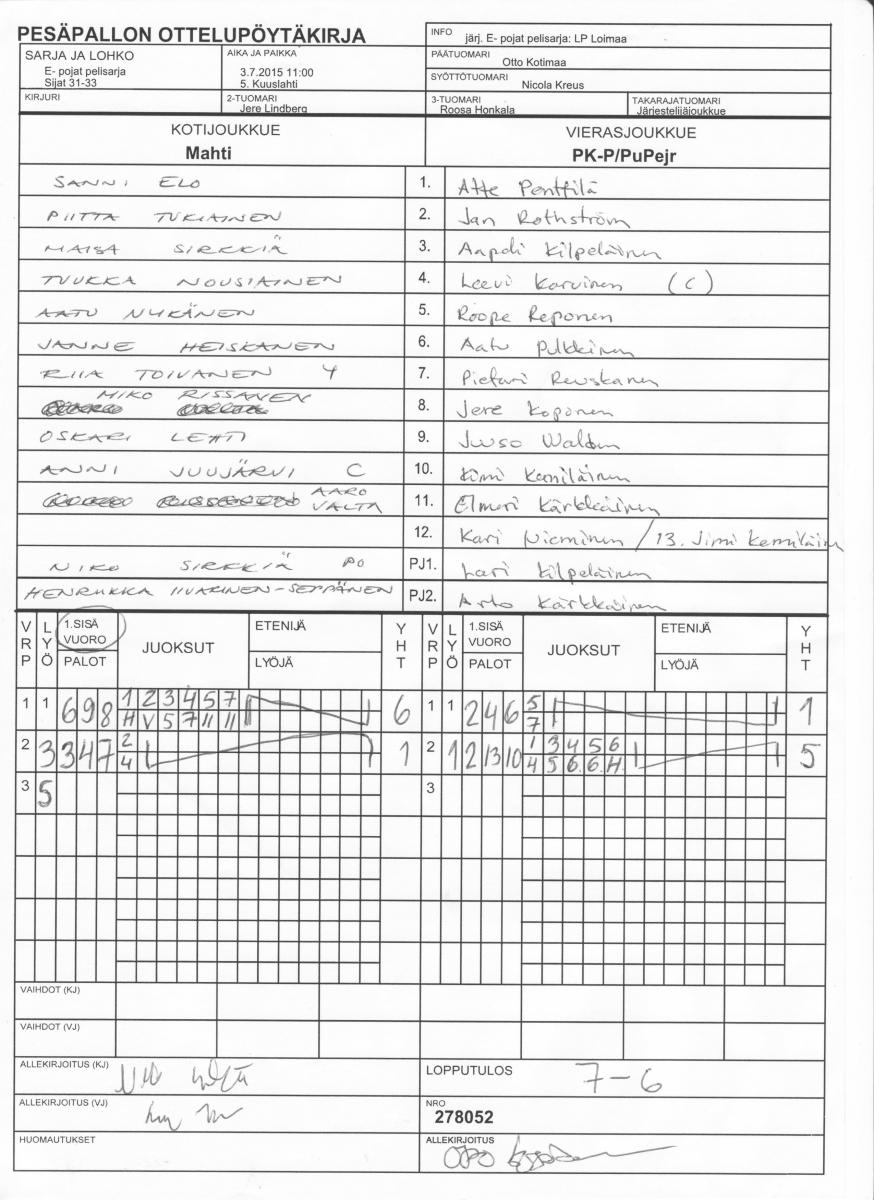 PESÄPALLON OTTELUPÖYTÄKIRJA
INFO järj. E- pojat pelisarja: LP Loimaa
SARJA JA LOHKO
E- pojat pelisarja
Sijat 31-33
AIKA JA PAIKKA
3.7.2015 11:00
5. Kuuslahti
PÄÄTUOMARI Otto Kotimaa
SYÖTTÖTUOMARI Nicola Kreus
KIRJURI
2-TUOMARI
Jere Lindberg
3-TUOMARI
Roosa Honkala
TAKARAJATUOMARI
Järjestelijäjoukkue
KOTIJOUKKUE VIERASJOUKKUE
Mahti PK-P/PuPejr
SANNI ELO 1. Atte Penttilä
PIITTA TUKIAINEN 2. Jan Rothström
MAISA SIRKKIÄ 3. Aapeli Kilpeläinen
TUUKKA NOUSIAINEN 4. Leevi Karvinen (C)
AATU NYKÄNEN 5. Roope Reponen
JANNE HEISKANEN 6. Aatu Pulkkinen
RIIA TOIVANEN 4 7. Pietari Reuskanen
MIKO RISSANEN 8. Jere Koponen
OSKARI LEHTI 9. Juuso Walden
ANNI JUUJÄRVI C 10. Kimi Kemiläinen
AARO VALTA 11. Elmeri Kärkkäinen
12. Kari Nieminen / 13. Jimi Kemiläinen
NIKO SIRKKIÄ PO PJ1. Lari Kilpeläinen
HENRIIKKA IIVARINEN-SEPPÄNEN PJ2. Arto Kärkkäinen
VRP LYÖ 1.SISÄ VUORO PALOT JUOKSUT ETENIJÄ LYÖJÄ YHT VRP LYÖ 1.SISÄ VUORO PALOT JUOKSUT ETENIJÄ LYÖJÄ YHT
1 1 6 9 8 1 2 3 4 5 7 6 1 1 2 4 6 5 1
H V 5 7 11 11 7
2 3 3 4 7 2 1 2 1 2 13 10 1 3 4 5 6 5
4 4 5 6 6 H
3 5 3
VAIHDOT (KJ)
VAIHDOT (VJ)
ALLEKIRJOITUS (KJ)
LOPPUTULOS 7-6
ALLEKIRJOITUS (VJ)
NRO
278052
HUOMAUTUKSET
ALLEKIRJOITUS